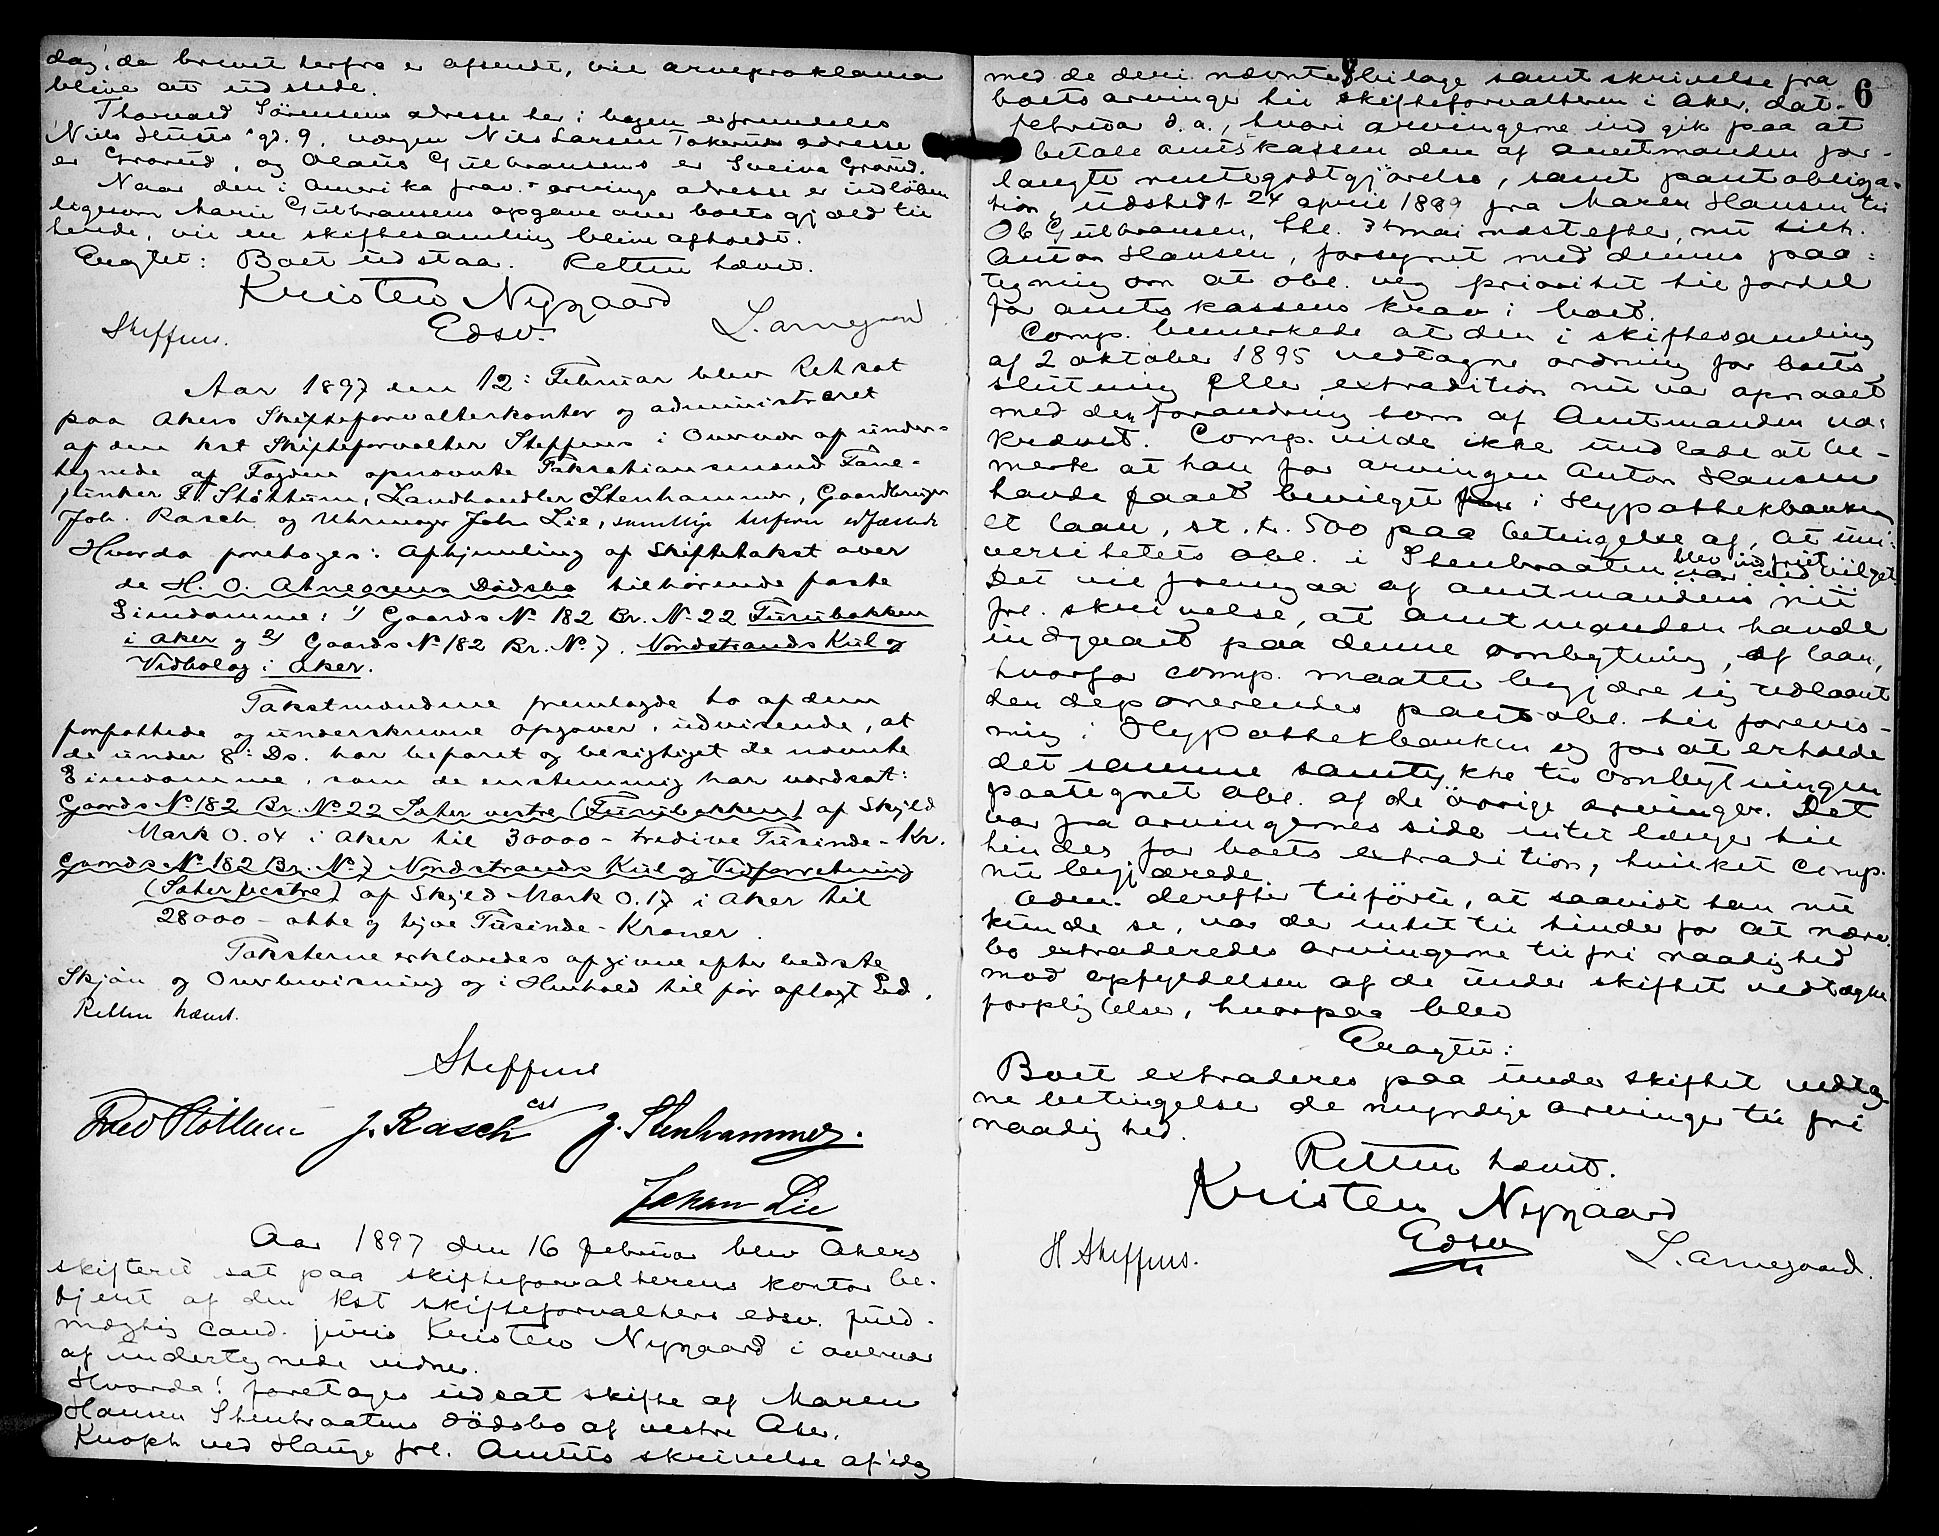 dag, da brevet herfra er afsendt, vil arveproklama
blive at udstede.
Thorvald Sörensens adresse her i byen er fremdeles
Niels Juuls gd. 9, værgen Nils Larsen Tokerud adresse
er Grorud, og Olaus Gulbransens er Grorud.
Naar den i Amerika frav. arvings adresse er indløben
ligesom Marie Gulbransens opgave over boets gjæld til
hende, vil en skiftesamling blive afholdt.
Eragtet: Boet udstaa. Retten hævet.
Kristen Nygaard
Edsv.
Steffens. L. Arnegaard.
Aar 1897 den 12: Februar blev Ret sat
paa Akers Skifteforvalterkontor og administreret
af den kst Skifteforvalter Steffens i Overvær af under-
tegnede af Fogden opnævnte Taksationsmænd
F Støttum, Landhandler Stenhammer, Gaardbruger
Joh. Rasch og Uhrmager Joh. Lie, samtlige
Hvorda foretoges: Afhjemling af Skiftetakst over
de H. O. Ahnegrens Dødsbo tilhørende faste
Eiendomme: 1/ Gaards No 182 Br. No 22 Furubakken
i Aker og 2/ Gaards No 182 Br. No 7. Nordstrands Kul og
Vedbolag i Aker.
Takstmændene fremlagde to af dem
forfattede og underskrevne opgaver, udvisende, at
de under 8: Ds. har befaret og besigtiget de nævnte
Eiendomme, som de enstemmig har værdsat:
Gaards No 182 Br. No 22 Sæter vestre (Furubakken) af Skyld
Mark 0.04 i Aker til 30000 - tredive Tusinde - Kr.
Gaards No 182 Br. No 7 Nordstrands Kul og Vedforretning
(Sæter vestre) af Skyld Mark 0.17 i Aker til
28000 - otte og tyve Tusinde - Kroner.
Taksterne erklæredes afgivne efter bedste
Skjön og Overbevisning og i Henhold til før aflagt Ed.
Retten hævet.
Steffens
cst
Fred Støttum J. Rasch J. Stenhammer.
Johan Lie
Aar 1897 den 16 februar blev Akers
skifteret sat paa skifteforvalterens kontor be-
tjent af den kst skifteforvalters edsv. fuld-
mægtig cand. juris Kristen Nygaard i overvær
af undertegnede vidner.
Hvorda: foretoges udsat skifte af Maren
Hansen Stenbraatens dødsbo af vestre Aker.
Knoph ved Hauge frl. Amtets skrivelse af idag
6
med de deri nævnte 8 bilage samt skrivelse fra
boets arvinger til skifteforvalteren i Aker, dat.
februar d.a., hvori arvingerne indgik paa at
betale amtskassen den af amtmanden for-
langte rentegodtgjörelse, samt pantobliga-
tion, udstedt 24 april 1889 fra Maren Hansen til
Ole Gulbransen, thl. 3 mai næstefter, nu tilh.
Anton Hansen, forsynet med dennes paa-
tegning om at obl. veg prioritet til fordel
for amtskassens krav i boet.
Comp. bemerkede at den i skiftesamling
af 2 oktober 1895 vedtagne ordning for boets
slutning eller extradition nu var opnaaet
med den forandring som af Amtmanden ud-
krævet. Comp. vilde ikke undlade at be-
merke at han for arvingen Anton Hansen
havde faaet bevilget i Hypothekbanken
et laan, st. kr. 500 paa betingelse af, at uni-
versitetets obl. i Stenbraaten blev indfriet
Det vil fremgaa af amtmandens nu
frl. skrivelse, at amtmanden havde
indgaaet paa denne ombytning af laan,
hvorfor comp. maatte begjære sig udlaant
den deponerendes pantobl. til forevis-
ning i Hypothekbanken og for at erholde
det samme samtykke til ombytningen
paategnet obl. af de övrige arvinger. Det
var fra arvingernes side intet længer til
hinder for boets extradition, hvilket comp.
nu begjærede.
Adm. derefter tilförte, at saavidt han nu
kunde se, var der intet til hinder for at nære.
bo extraderedes arvingerne til fri raadighed
mod opfyldelsen af de under skiftet vedtagne
forpligtelser, hvorpaa blev
Eragtet:
Boet extraderes paa under skiftet vedtag-
ne betingelser de myndige arvinger til fri
raadighed.
Retten hævet.
Kristen Nygaard
Edsv
H Steffens. L. Arnegaard.